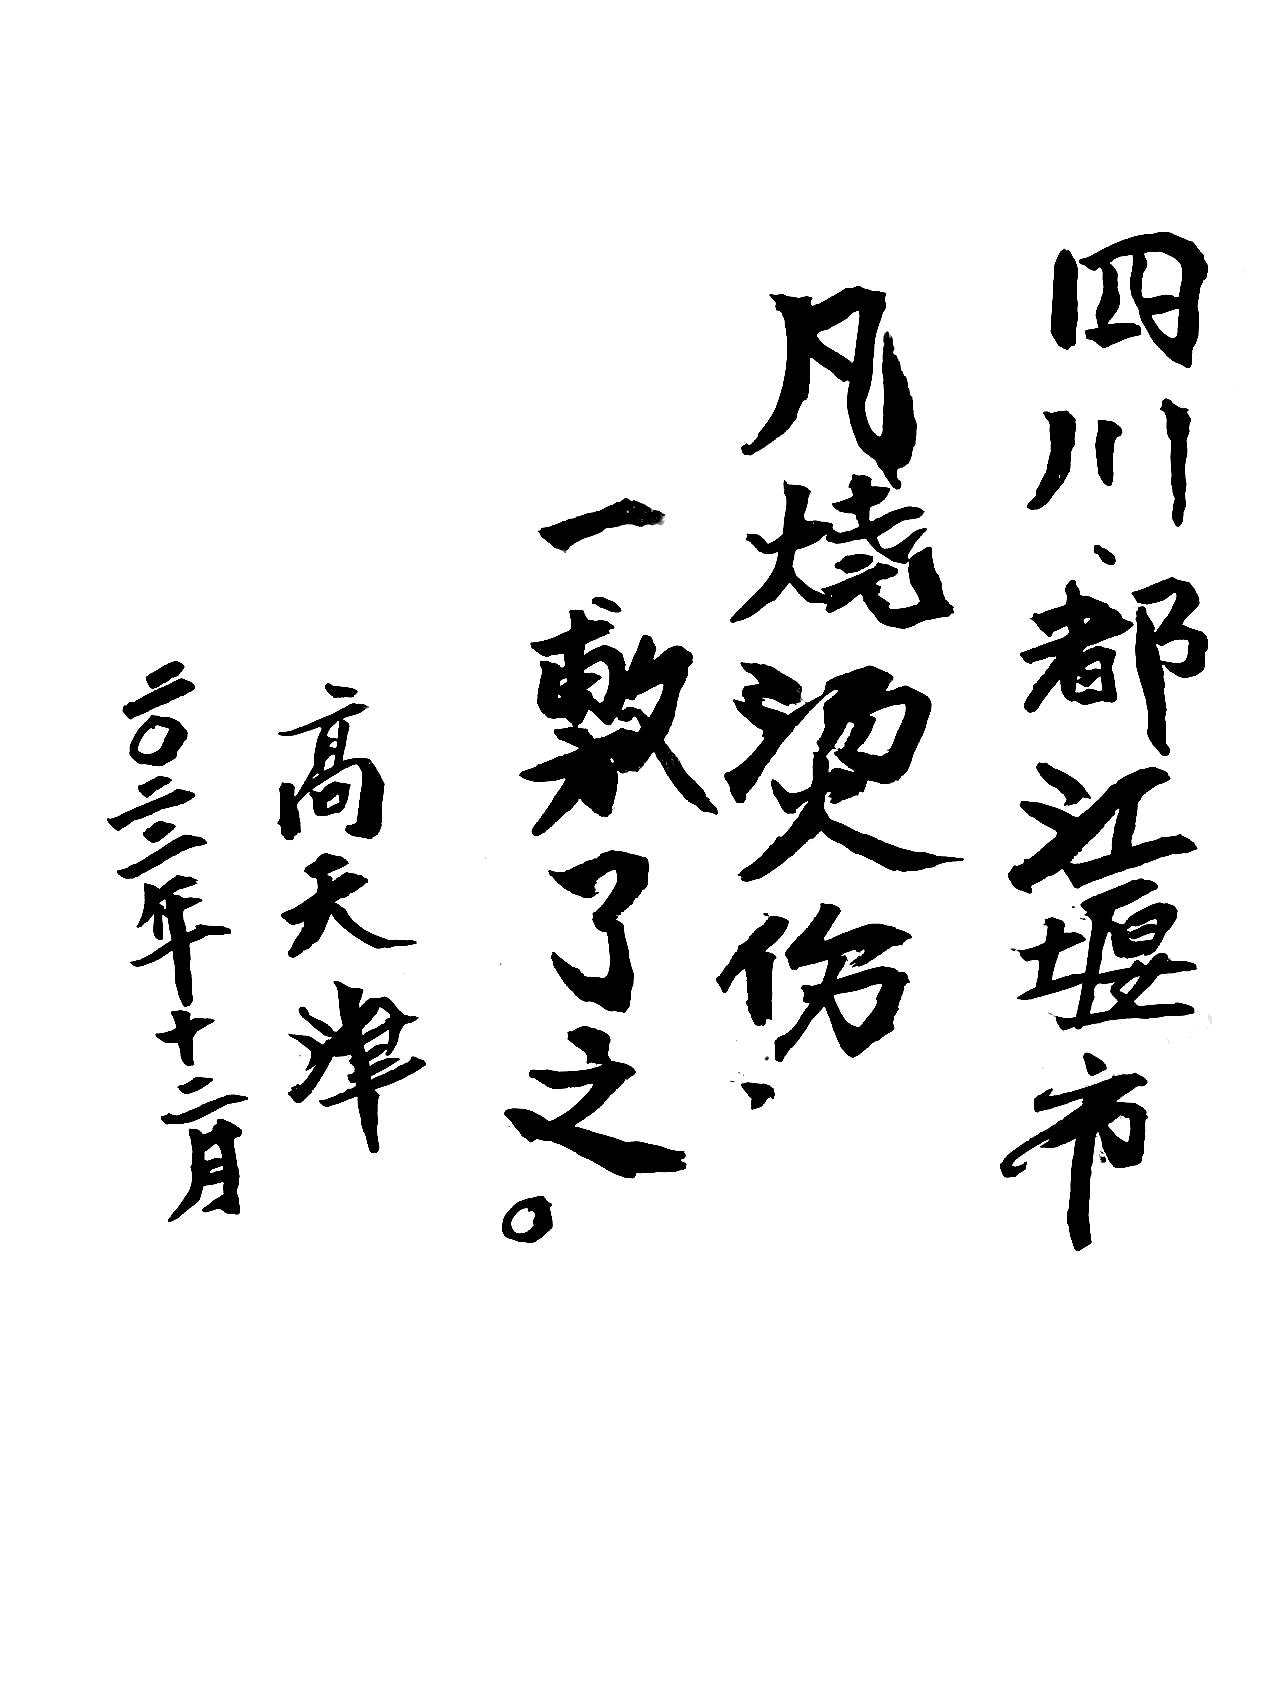 四川、都江堰市
凡烧烫伤、
一敷了之。
高天津
二〇二二年十二月